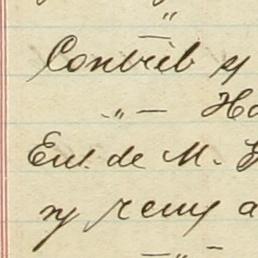 "
Contrib y
" — Ha
Ent. de M. G
y remy a
— " —